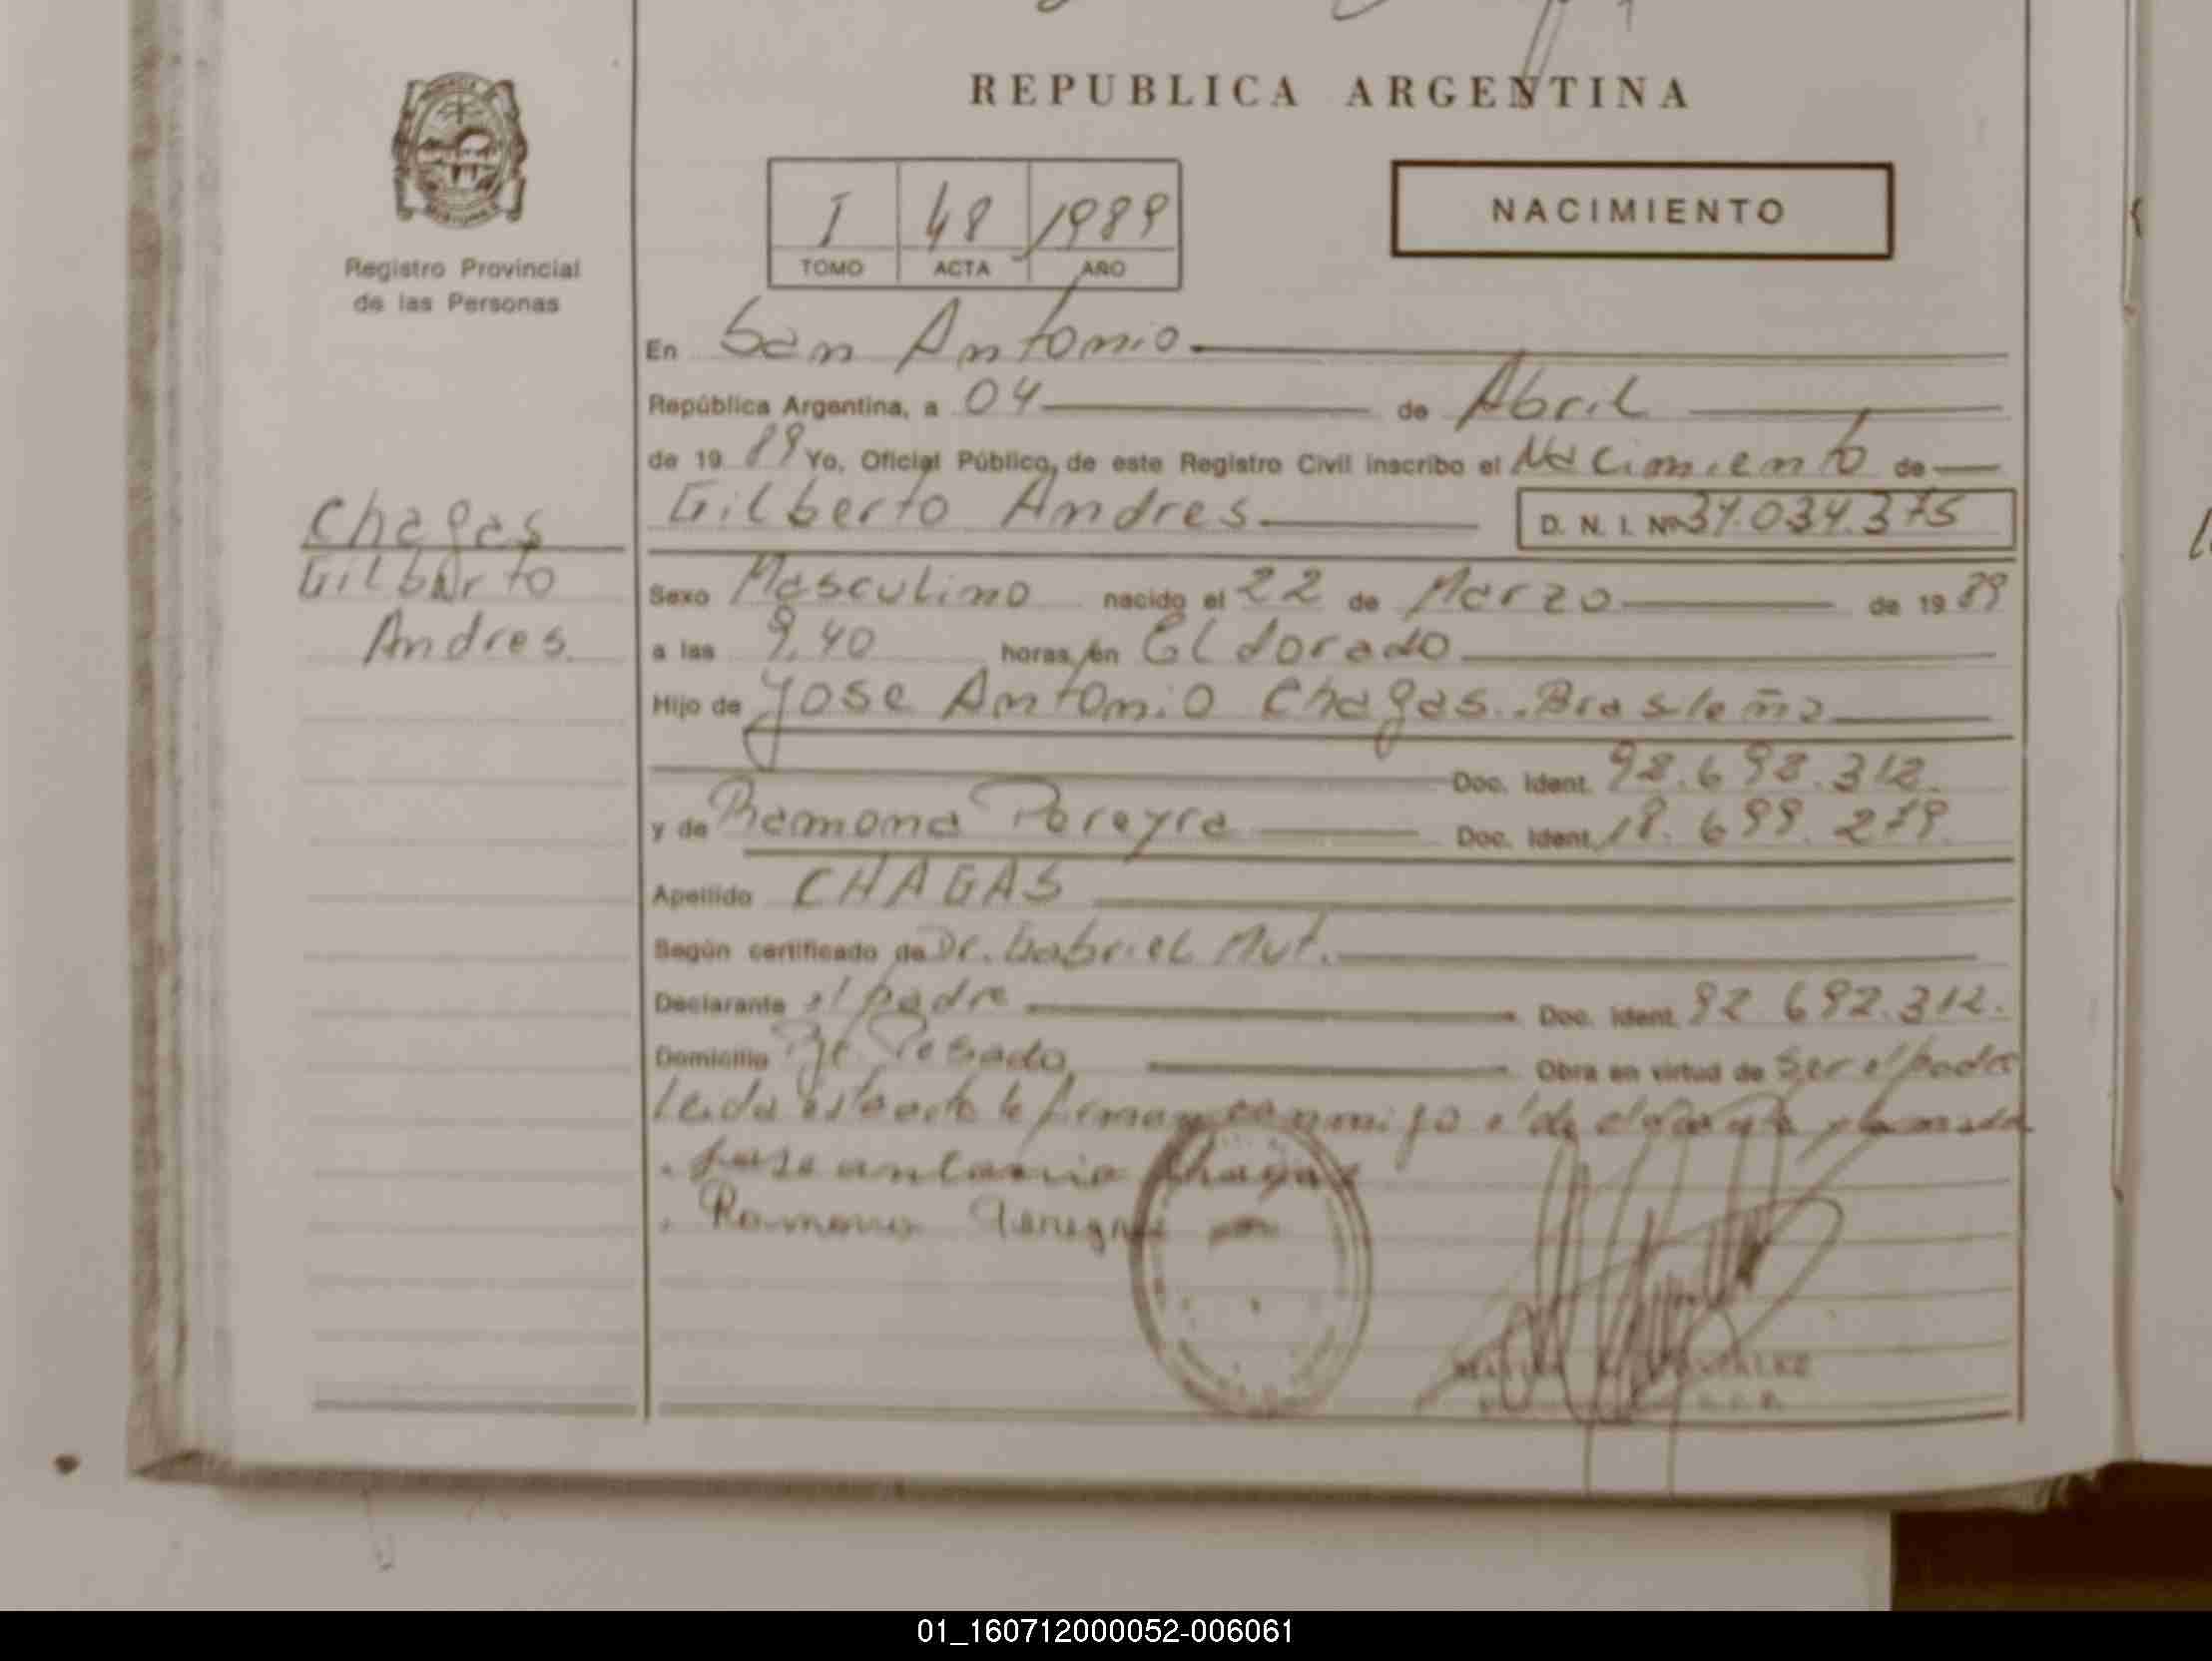 REPUBLICA ARGENTINA
I 48 1989
TOMO ACTA AÑO
NACIMIENTO
Registro Provincial
de las Personas
En San Antonio
República Argentina, a 04 de Abril
de 19 89 Yo, Oficial Público, de este Registro Civil inscribo el Nacimiento de
Gilberto Andres D. N. I. Nº 34.034.375
Chagas
Gilberto
Andres.
Sexo Masculino nacido el 22 de Marzo de 19 89
a las 9,40 horas, en Eldorado
Hijo de Jose Antonio Chagas. Brasileña
Doc. Ident. 92.692.312.
y de Ramona Pereyra Doc. Ident. 18.699.279.
Apellido CHAGAS
Según certificado de Dr. Gabriel Mut.
Declarante el padre Doc. Ident. 92 692.312.
Domicilio Pje Rosado Obra en virtud de ser el padre
Leida esta acta la firman conmigo el declarante y la madre
Jose antonio Chagas
Ramona Pereyra
01_160712000052-006061